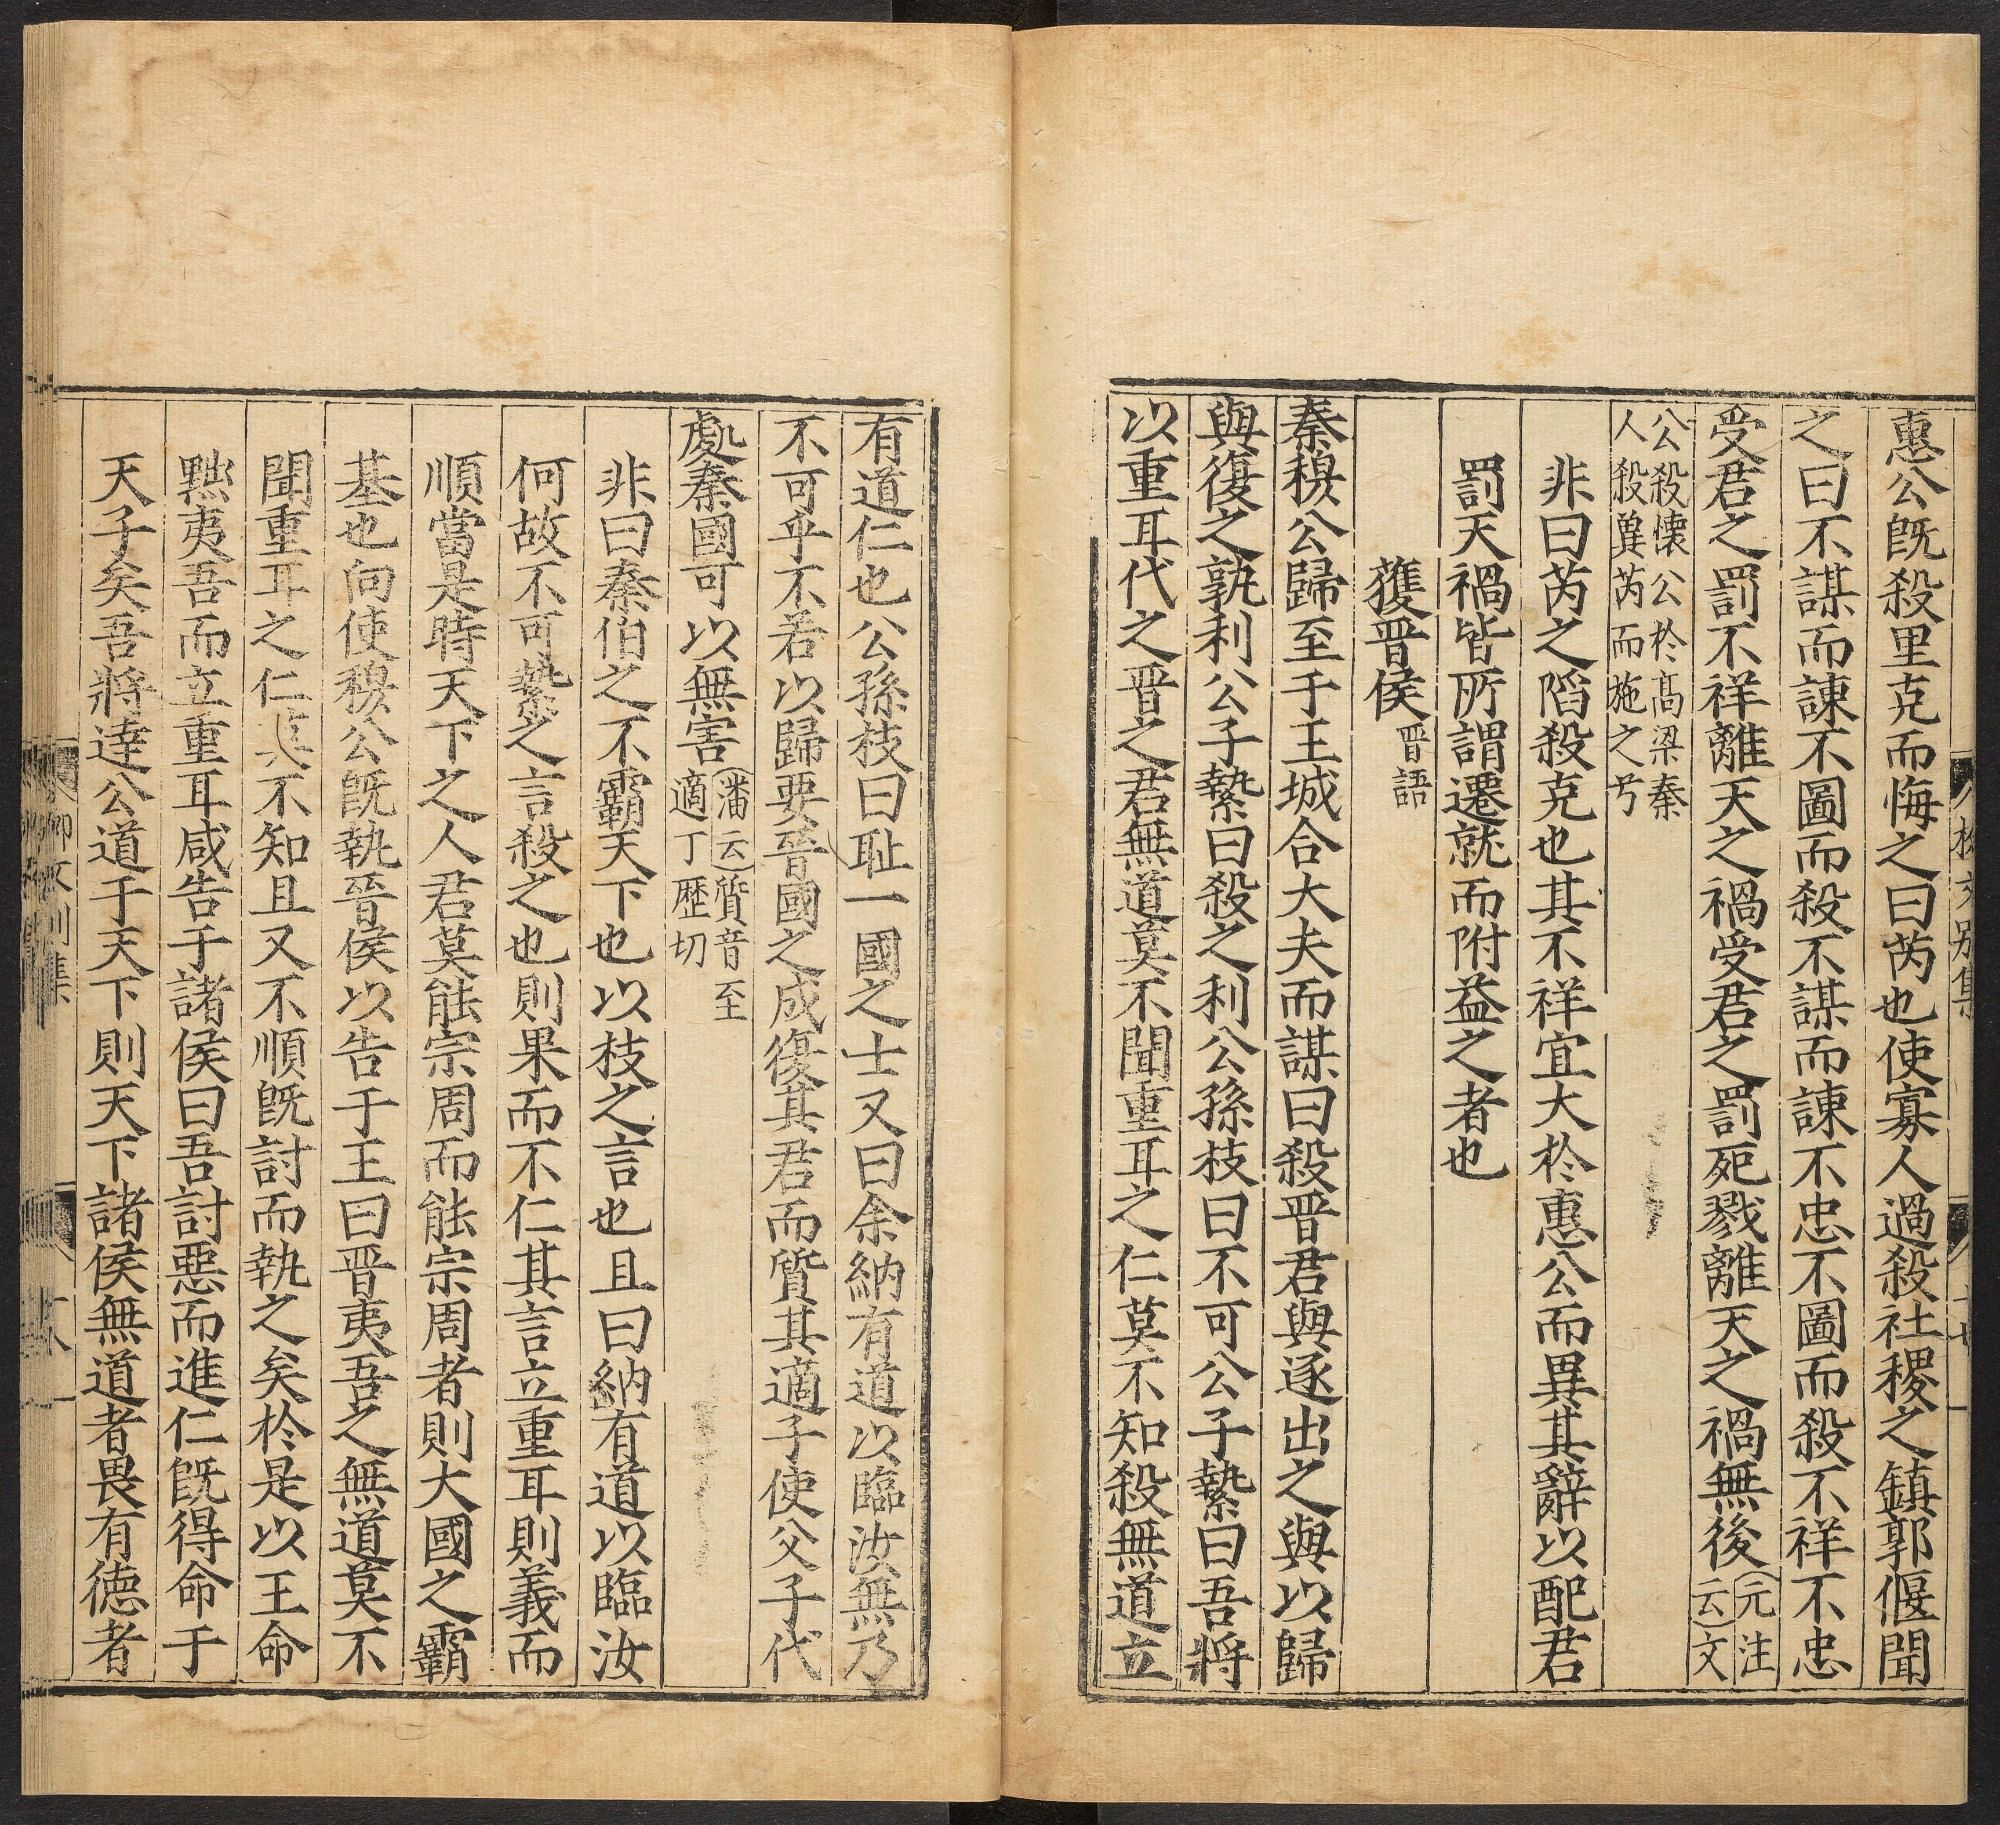 惠公既殺里克而悔之曰芮也使寡人過殺社稷之鎮郭偃聞
之曰不謀而諫不圖而殺不謀而諫不忠不圖而殺不祥不忠
受君之罰不祥離天之禍受君之罰死戮離天之禍無後元注云文
公殺懷公於高梁秦
人殺冀芮而施之兮
非曰芮之陷殺克也其不祥宜大於惠公而異其辭以配君
罰天禍皆所謂遷就而附益之者也
獲晋侯晋語
秦穆公歸至于王城合大夫而謀曰殺晋君與逐出之與以歸
與復之孰利公子縶曰殺之利公孫枝曰不可公子縶曰吾將
以重耳代之晋之君無道莫不聞重耳之仁莫不知殺無道立
有道仁也公孫枝曰耻一國之士又曰余納有道以臨汝無乃
不可乎不若以歸要晉國之成復其君而質其適子使父子代
處秦國可以無害潘云質音至適丁歷切
非曰秦伯之不霸天下也以枝之言也且曰納有道以臨汝
何故不可縶之言殺之也則果而不仁其言立重耳則義而
順當是時天下之人君莫能宗周而能宗周者則大國之霸
基也向使穆公既執晉侯以告于王曰晋夷吾之無道莫不
聞重耳之仁莫不知且又不順既討而執之矣於是以王命
黜夷吾而立重耳咸告于諸侯曰吾討惡而進仁既得命于
天子矣吾將達公道于天下則天下諸侯無道者畏有德者